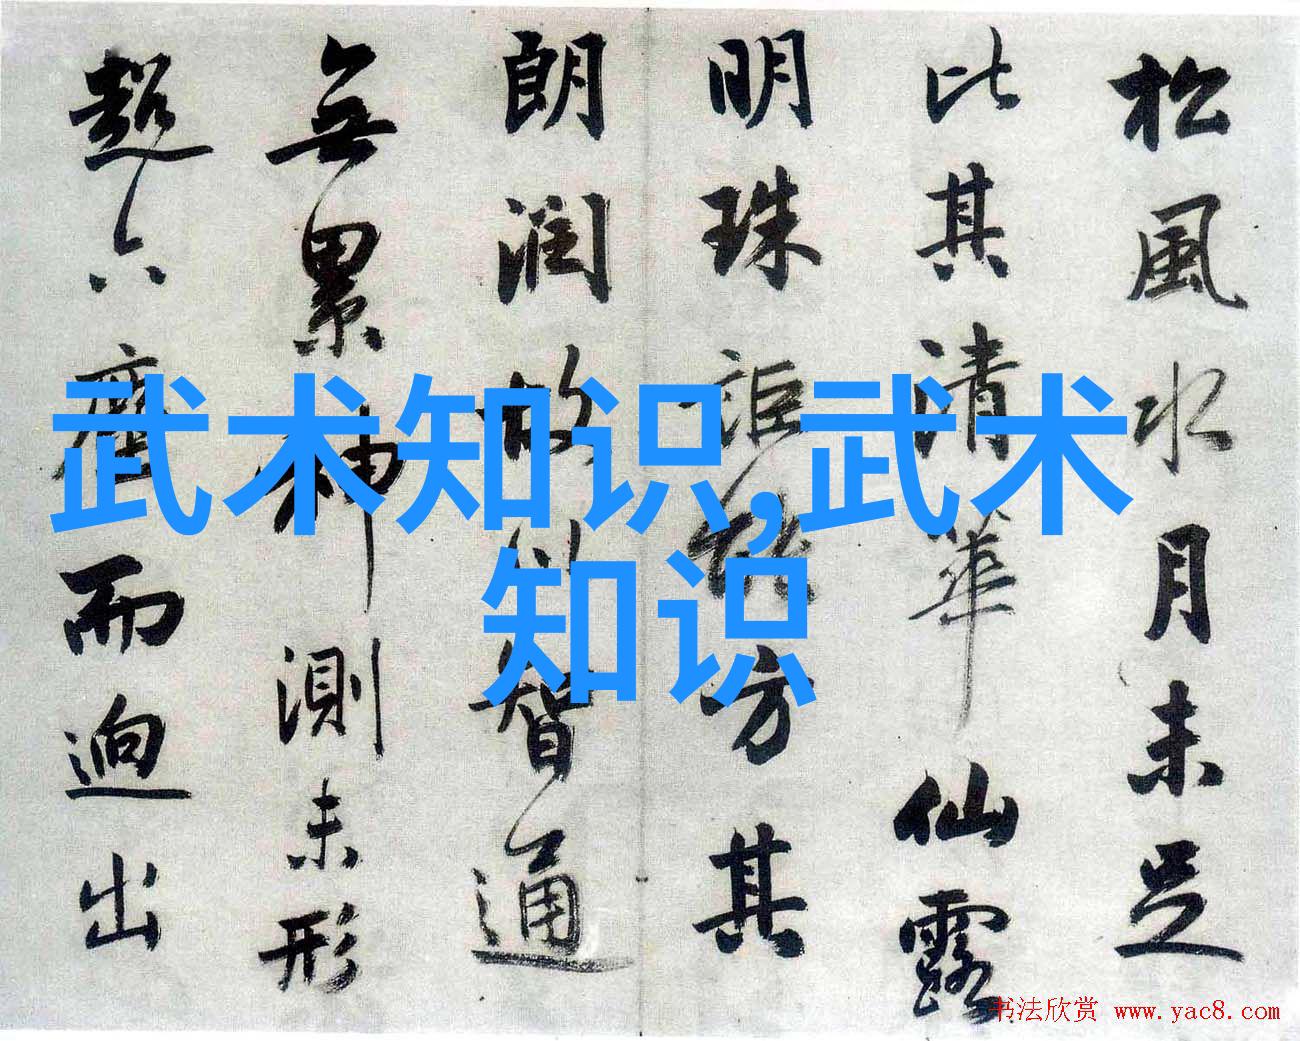 松風水月未足
比其清華仙露
明珠詎能方其
朗潤故以智通
無累神測未形
超六塵而迥出
武术知识,武术
知识
书法欣赏 www.yac8.com